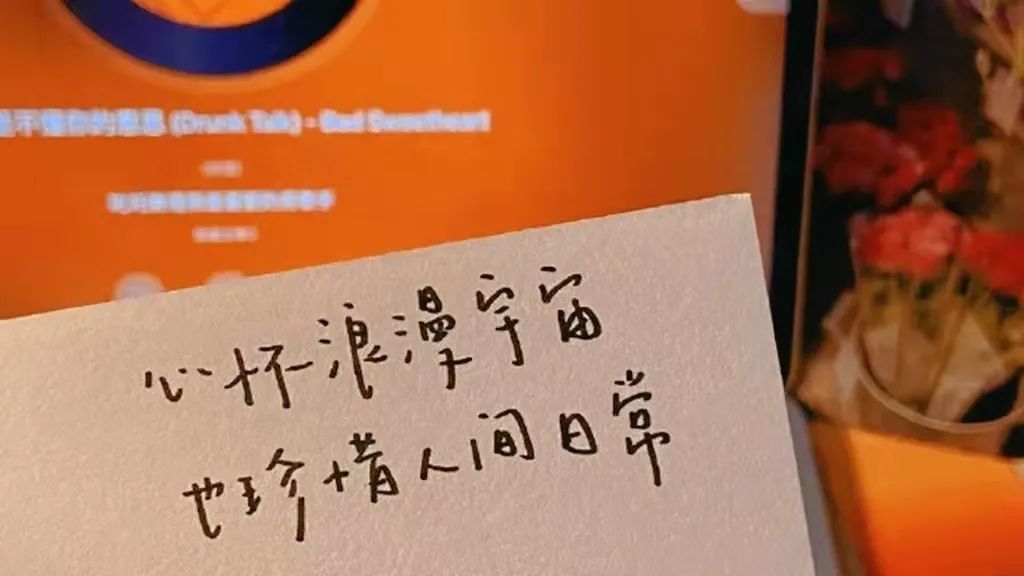 (Drunk Talk) - Bad Sweetheart
心怀浪漫宇宙
也珍惜人间日常